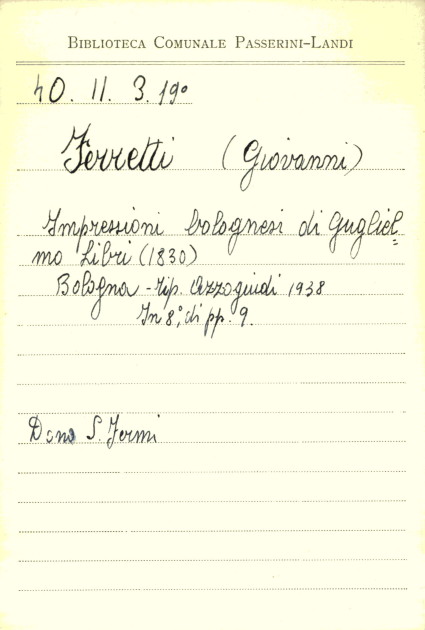 BIBLIOTECA COMUNALE PASSERINI-LANDI
40. II. 3. 19º
Ferretti (Giovanni)
Impressioni bolognesi di Gugliel=
mo Libri (1830)
Bologna - Tip. Azzoguidi 1938
In 8º, di pp. 9.
Dono S. Fermi